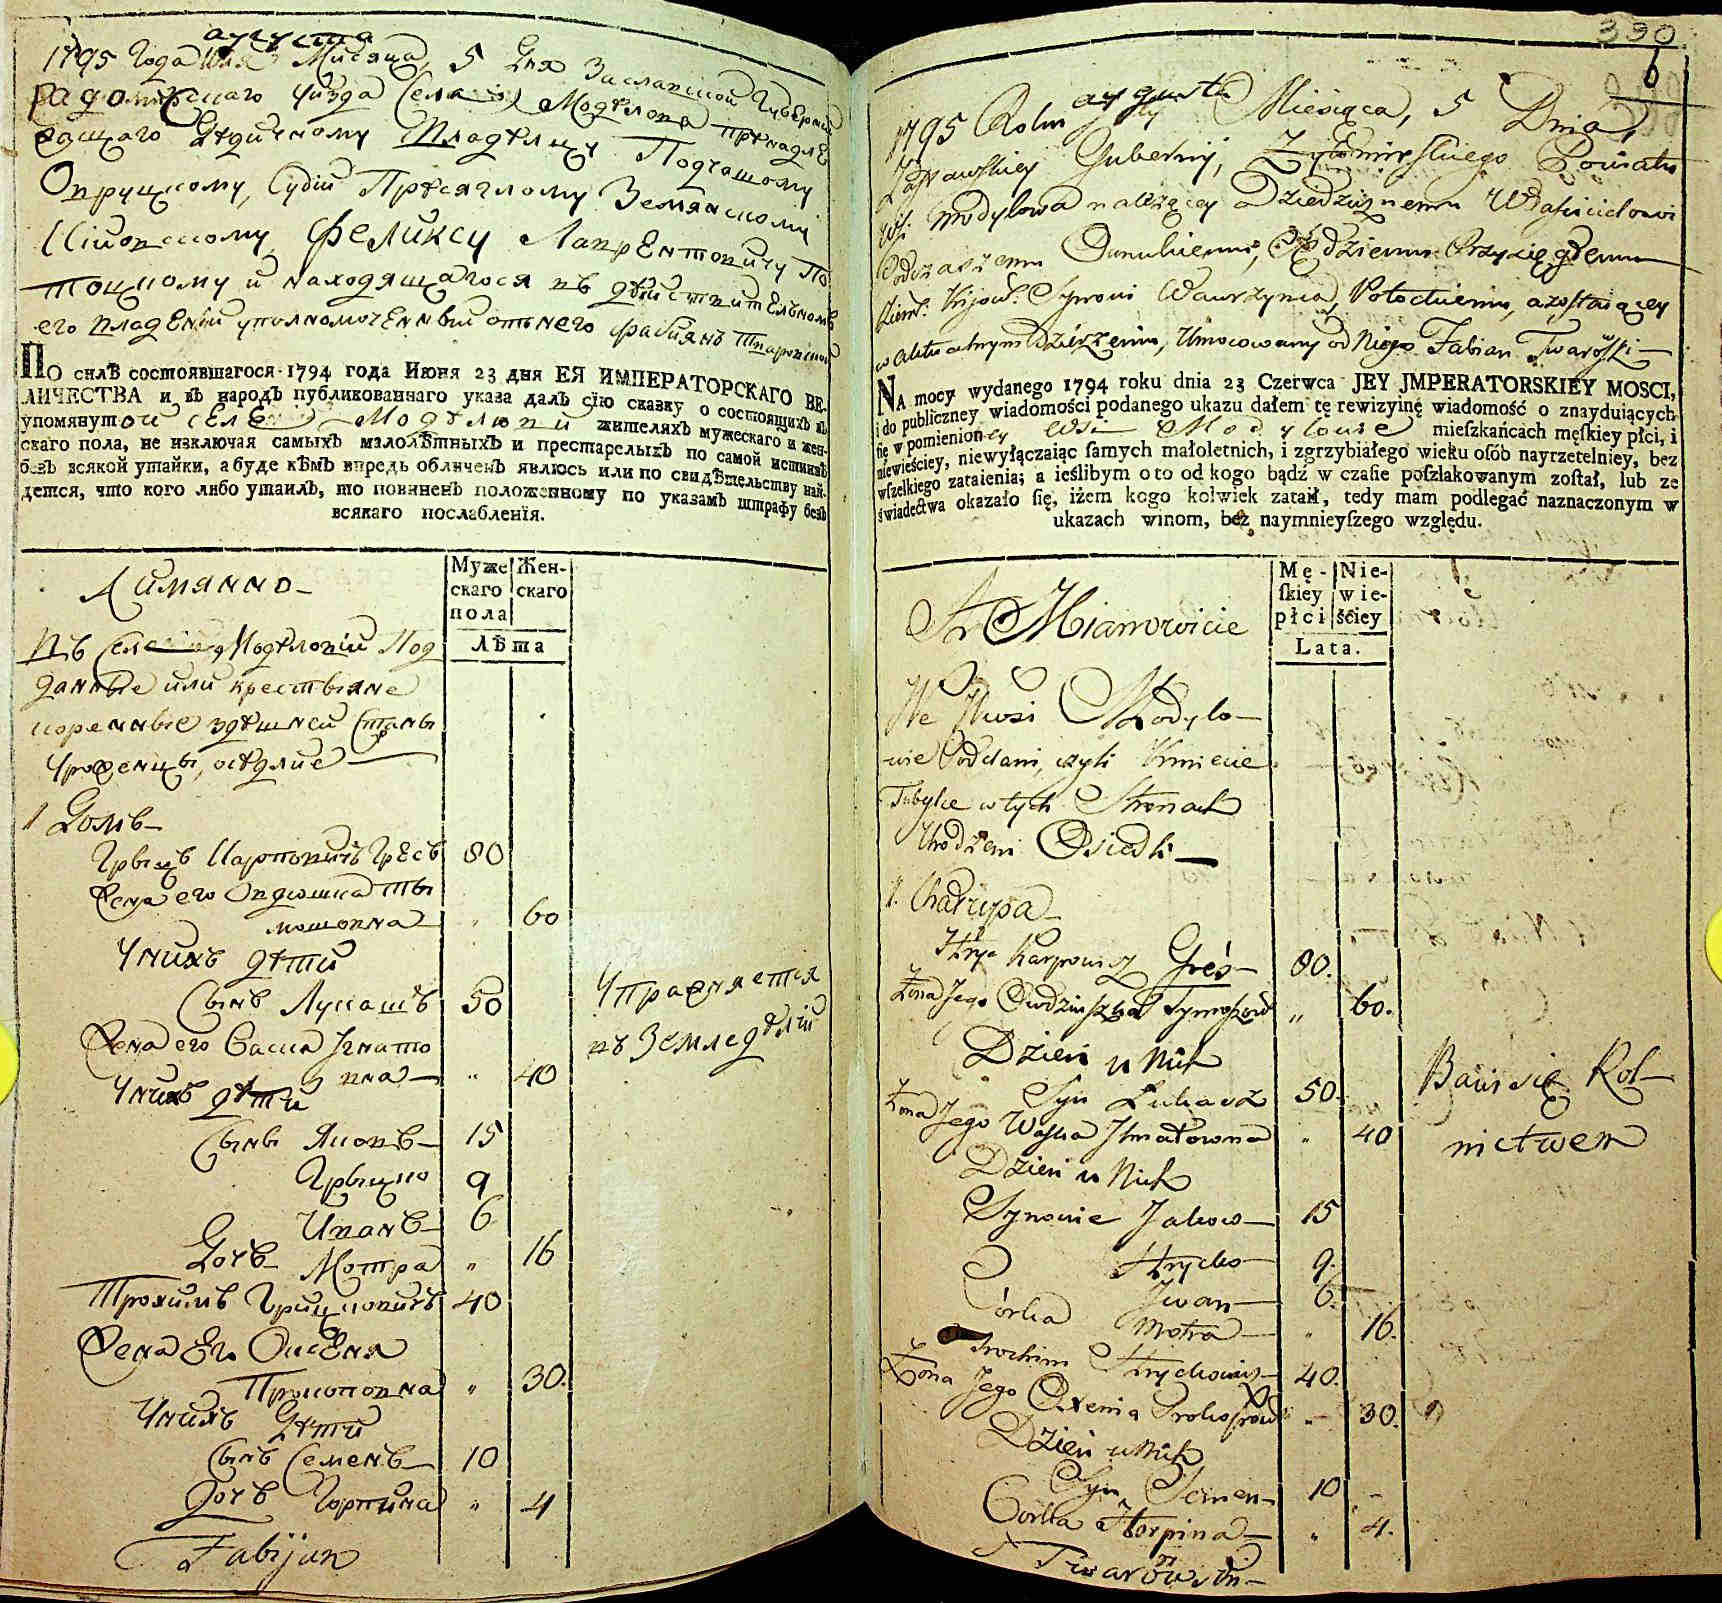 1795 Года августа Мисяца, 5 Дня Заславской Губерни
Радомирскаго Уизда Села Моделова принадле
жащаго Дедичному Владелцу Подчашому
Овруцкому, Судiи Присяглому Земянскому
Кiiовскому Феликсу Лаврентовичу По
тоцкому и находящагося въ
его владенiи уполномоченный отънего Фабиянъ Тваровски
ПО силѣ состоявшагося 1794 года Июня 23 дня ЕЯ ИМПЕРАТОРСКАГО ВЕ-
ЛИЧЕСТВА и въ народъ публикованнаго указа далъ сїю сказку о состоящихъ въ
упомянутой селе Моделови жителяхъ мужескаго и жен-
скаго пола, не изключая самыхъ малолѣтныхъ и престарелыхъ по самой истиннѣ
безъ всякой утайки, а буде кѣмъ впредь обличенъ явлюсь или по свидѣтельству най-
дется, что кого либо утаилъ, то повиненъ положенному по указамъ штрафу безъ
всякаго послабленїя.
Аимянно
Муже
скаго
пола
Жен-
скаго
Лѣта
Въ Селе Моделовiи Под
данные или крестьяне
коренные здешней страны
Уроженцы, оседлие
1 Домъ
Грыцъ Карповичъ Гресъ 80
Жена его Овдюшка Ты
мошовна " 60
Унихъ дети
Сынъ Лукашъ 50
Жена его Васка Игнато
вна " 40
Унихъ дети
Сыны Яковъ 15
Грыцко 9
Иванъ 6
Дочъ Мотра " 16
Трохимъ Грицковичъ 40
Жена Его Оксеня
Прокоповна " 30.
Унихъ Дети
Сынъ Семенъ 10
Дочъ Горпина " 4
Упражняется
въ Земледелiи
Fabijan
330
6
1795 Roku augusta Miesiąca, 5 Dnia,
Zasławskiey Gubernij, Żytomirskiego Powiatu
Wsi Modylowa należącey Dziedzicznemu Właścicielowi
Podczaszemu Owruckiemu, Sędziemu Przysięgłemu
Ziem: Kijow: Synowi Wawrzynca, Potockiemu, a zostaiącey
w aktualnym dzierzeniu, Umocowany od Niego Fabian Twarowski
NA mocy wydanego 1794 roku dnia 23 Czerwca JEY JMPERATORSKIEY MOSCI,
i do publiczney wiadomości podanego ukazu dałem tę rewizyinę wiadomość o znayduiących-
się w pomienioney Wsi Modylowie mieſzkańcach męſkiey płci, i
niewieściey, niewyłączaiąc ſamych małoletnich, i zgrzybiałego wieku oſób nayrzetelniey, bez
wſzelkiego zataienia; a ieślibym o to od kogo bądź w czaſie poſzlakowanym zoſtał, lub ze
świadectwa okazało ſię, iżem kogo kolwiek zataił, tedy mam podlegać naznaczonym w
ukazach winom, bez naymnieyſzego względu.
A Mianowicie
Mę-
ſkiey
płci
Nie-
wie-
ściey
Lata.
We Wsi Modylo-
wie Poddani, czyli Kmiecie
Tubylce w tych Stronach
Urodzeni Osiedli
1. Chałupa
Hryc Karpowicz Greś 80.
Żona Jego Owdziuszka Tymoszow " 60.
Dzieci u Nich
Syn Łukasz 50.
Żona Jego Waska Ihnatowna " 40
Dzieci u Nich
Synowie Jakow 15
Hrycko 9.
Jwan 6.
Córka Motra " 16.
Trochim Hryckowicz 40.
Żona Jego Oxenia Prokopow " 30.
Dzieci u Nich
Syn Semen 10
Córka Horpina " 4.
Bawi się Rol-
nictwem
Twarowski